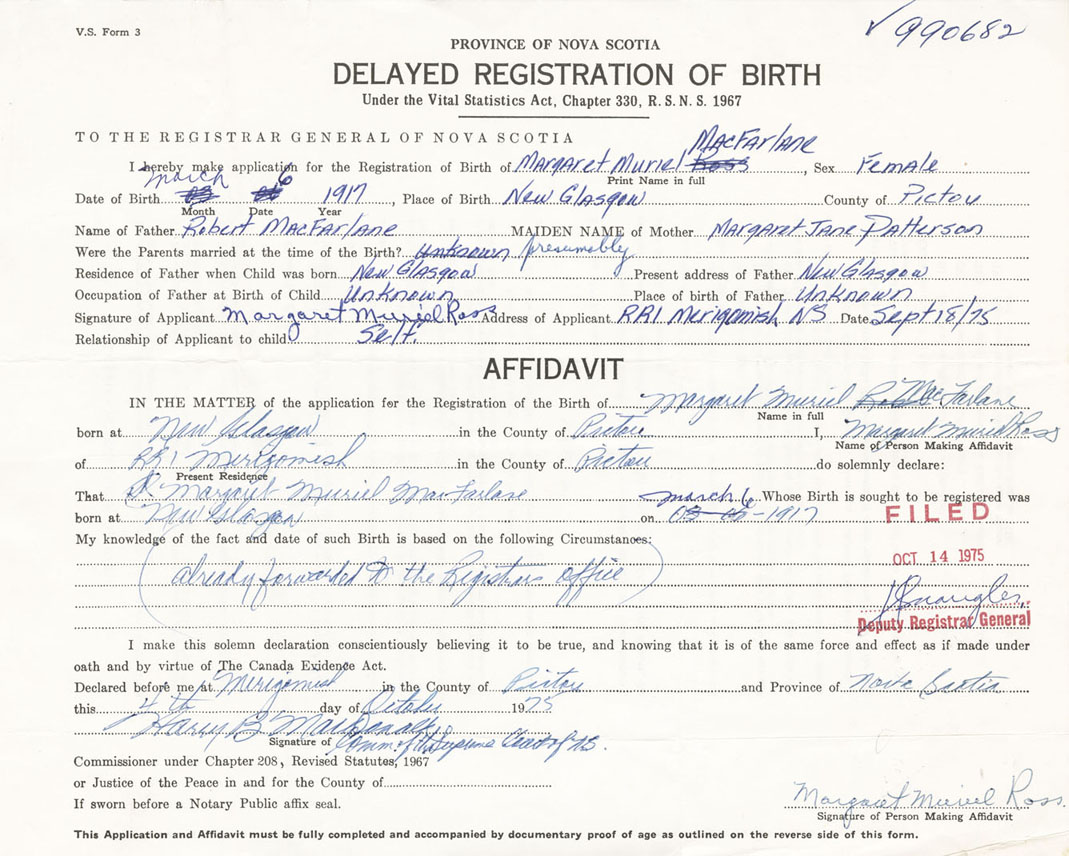 V.S. Form 3
✓990682
PROVINCE OF NOVA SCOTIA
DELAYED REGISTRATION OF BIRTH
Under the Vital Statistics Act, Chapter 330, R.S.N.S. 1967
TO THE REGISTRAR GENERAL OF NOVA SCOTIA
MacFarlane
I hereby make application for the Registration of Birth of Margaret Muriel Ross, Sex Female
Print Name in full
March 6
Date of Birth 03 1917, Place of Birth New Glasgow County of Pictou
Month Date Year
Name of Father Robert MacFarlane MAIDEN NAME of Mother Margaret Jane Patterson
Were the Parents married at the time of the Birth? Unknown presumably
Residence of Father when Child was born New Glasgow Present address of Father New Glasgow
Occupation of Father at Birth of Child Unknown Place of birth of Father Unknown
Signature of Applicant Margaret Muriel Ross Address of Applicant RR1 Merigomish NS Date Sept 18/75
Relationship of Applicant to child Self.
AFFIDAVIT
IN THE MATTER of the application for the Registration of the Birth of Margaret Muriel MacFarlane
Name in full
born at New Glasgow in the County of Pictou I, Margaret Muriel Ross
Name of Person Making Affidavit
of RR1 Merigomish in the County of Pictou do solemnly declare:
Present Residence
That Margaret Muriel MacFarlane March 6 Whose Birth is sought to be registered was
born at New Glasgow on 03 -1917
FILED
My knowledge of the fact and date of such Birth is based on the following Circumstances:
OCT 14 1975
(already forwarded to the Registrars office)
Deputy Registrar General
I make this solemn declaration conscientiously believing it to be true, and knowing that it is of the same force and effect as if made under
oath and by virtue of The Canada Evidence Act.
Declared before me at Merigomish in the County of Pictou and Province of Nova Scotia
this 4th day of October 1975
Harry B MacDonald
Signature of Comm. of the Supreme Court of N.S.
Commissioner under Chapter 208, Revised Statutes, 1967
or Justice of the Peace in and for the County of
If sworn before a Notary Public affix seal.
Margaret Muriel Ross
Signature of Person Making Affidavit
This Application and Affidavit must be fully completed and accompanied by documentary proof of age as outlined on the reverse side of this form.